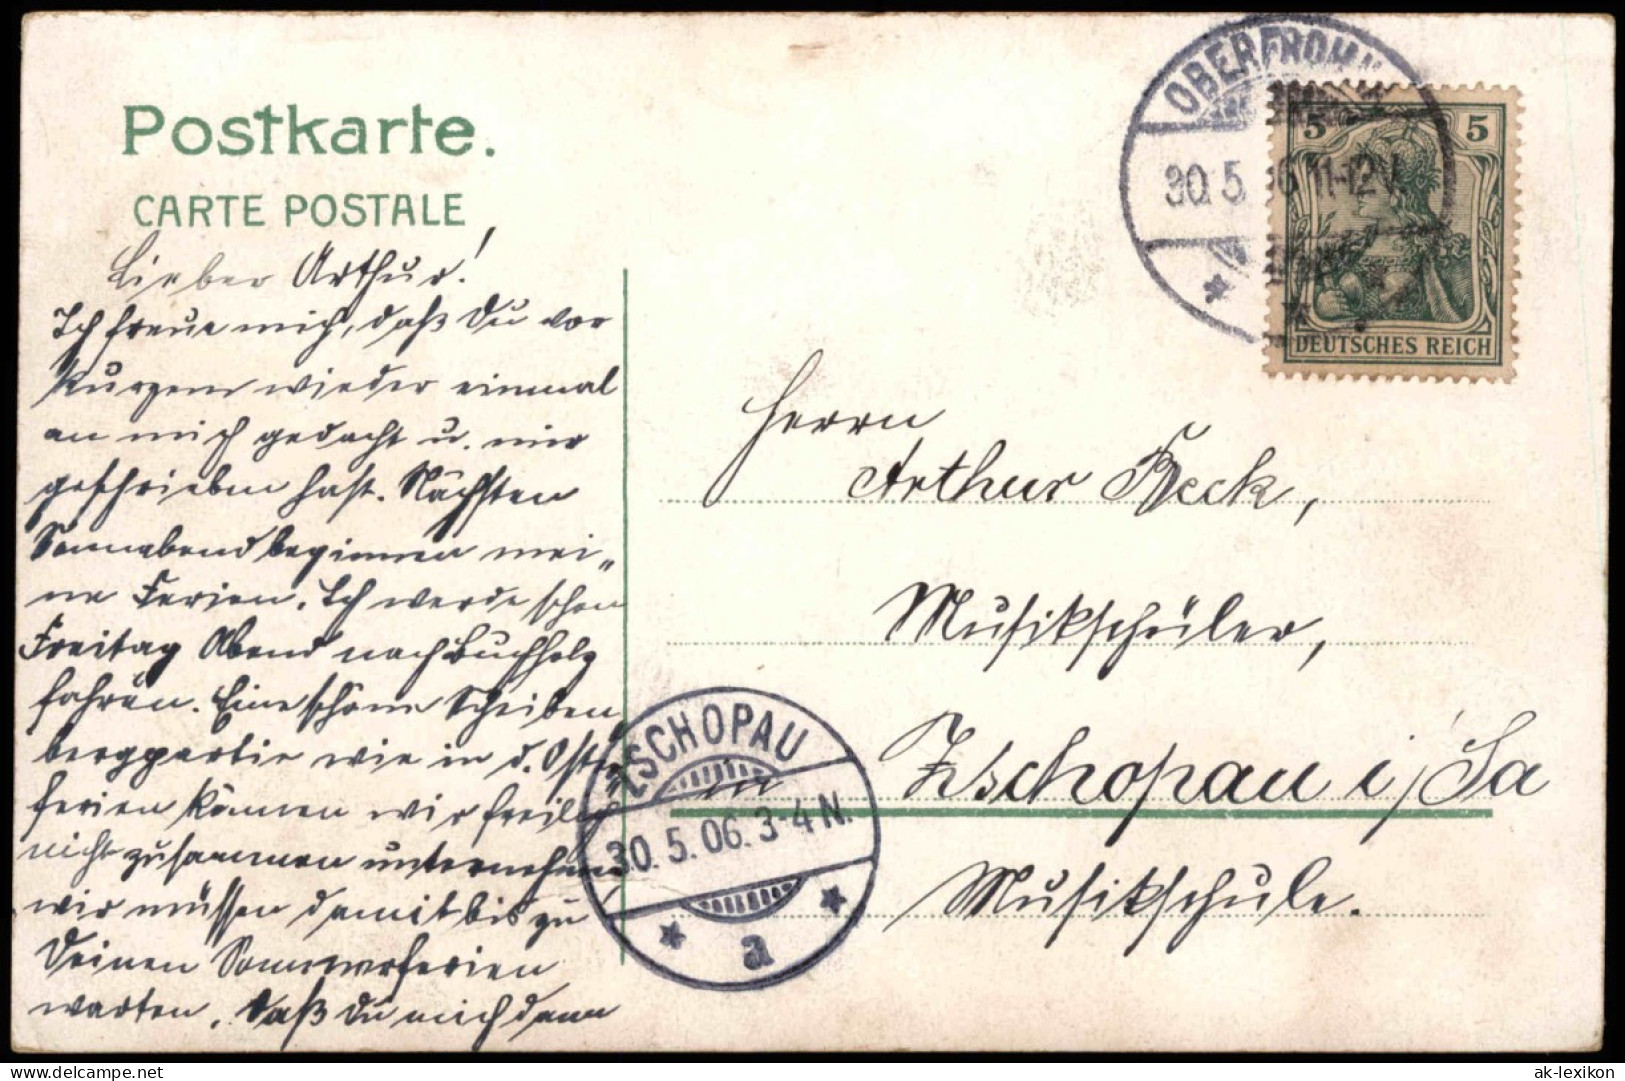 Postkarte.
CARTE POSTALE
Lieber Arthur!
Ich freue mich, daß Du vor
Kurzem wieder einmal
an mich gedacht u. mir
geschrieben hast. Nächsten
Sonnabend beginnen mei„
ne Ferien. Ich werde schon
Freitag Abend nach Buchholz
fahren. Eine schöne Scheiben„
bergpartie wie in d. Oster„
ferien können wir freilich
nicht zusammen unternehmen
wir müssen damit bis zu
Deinen Sommerferien
warten. Daß Du mich dann
OBERFROHN
30.5. 6 11-12V.
5 5
DEUTSCHES REICH
Herrn
Arthur Beck,
Musikschüler,
in Zschopau i/Sa
Musikschule.
ZSCHOPAU
30.5.06. 3-4N.
a
delcampe.net
ak-lexikon